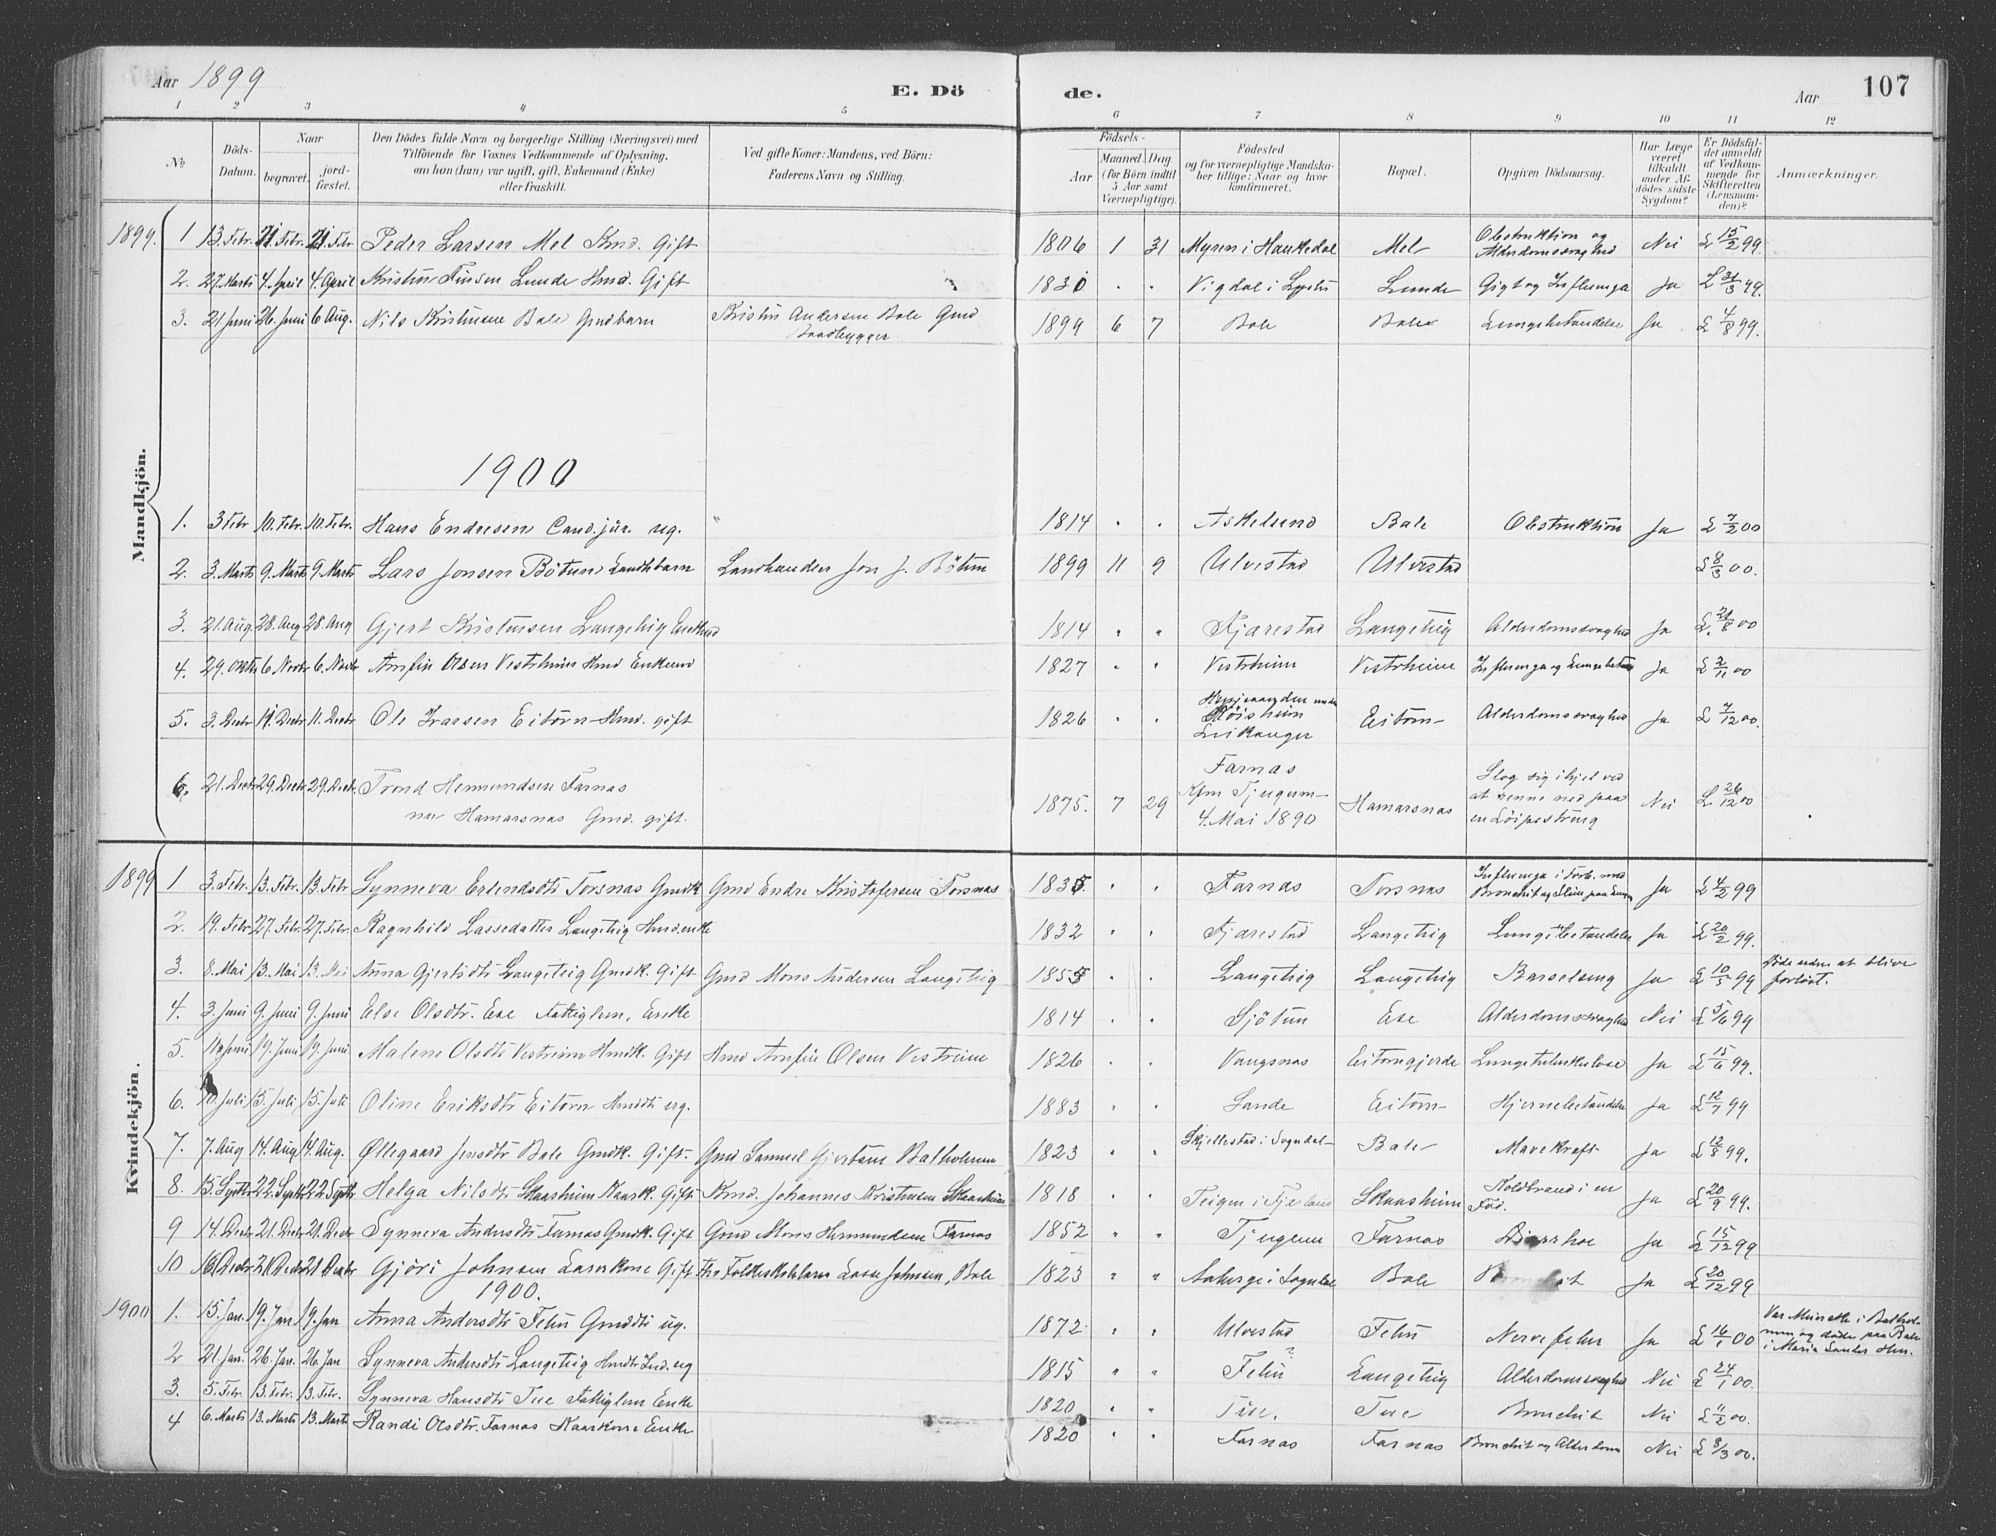 Aar 1899 E. Dö de. Aar 107
1 2 3 4 5 6 7 8 9 10 11 12
No
Döds-Datum.
Naar
begravet.
jord-fæstet.
Den Dödes fulde Navn og borgerlige Stilling (Næringsvei) med
Tilföiende for Voxnes Vedkommende af Oplysning,
om han (hun) var ugift, gift, Enkemand (Enke)
eller fraskilt.
Ved gifte Koner: Mandens, ved Börn:
Faderens Navn og Stilling.
Födsels-
Aar
Maaned. Dag.
(for Börn indtil
5 Aar samt
Værnepligtige).
Födested
og for værnepligtige Mandska-
ber tillige: Naar og hvor
konfirmeret.
Bopæl.
Opgiven Dödsaarsag.
Har Læge
været
tilkaldt
under Af-
dödes sidste
Sygdom?
Er Dödsfal-
det anmeldt
af Vedkom-
mende for
Skifteretten
(Lensman-
den)?
Anmærkninger.
Mandkjön.
1899. 1 13. Febr. 21. Febr. 21. Febr. Peder Larsen Mel Kmd. Gift 1806 1 31 Myren i Haukedal Mel Obstruktion og Alderdomssvaghed Nei L 15/2 99.
2. 27. Marts 4. April 4. April Kristen Lunde Hmd. Gift 1830 " " Vigdal i Lyster Lunde Gigt og Influenza Ja L 31/3 99.
3. 21 Juni 26. Juni 6 Aug. Nils Kristensen Bale Gmdbarn Kristen Andersen Bale Gmd 1899 6 7 Bale Bale Lungebetændelse Ja L 4/8 99.
1900
1. 3 Febr 10. Febr. 10. Febr. Hans Endresen Cand. jur. ug. " 1814 " " Askelund Bale Obstruktion Ja L 7/2 00
2. 3. Marts 9. Marts 9. Marts Lars Jonsen Bötun Landhbarn Landhandler Jon J. Bötun 1899 11 9 Ulvestad Ulvestad L 8/3 00.
3. 21. Aug. 28. Aug 28. Aug Gjert Kristensen Langeteig Enkmd 1814 " " Fjærestad Langeteig Alderdomssvaghed Ja L 24/8 00
4. 29. Oktbr 6 Novbr 6. Novbr Arnfin Olsen Vestrheim Hmd Enkemd 1827 " " Vestrheim Vestrheim Influenza og Lungebetænd Ja L 2/11 00
5. 3. Decbr 11. Decbr 11. Decbr Ole Ivarsen Eitorn Hmd. gift 1826 " " Husmanden under Röisheim Leikanger Eitorn Alderdomssvaghed Ja L 7/12 00.
6. 21. Decbr 29. Decbr 29. Decbr. Trond Hermundsen Farnas
nu Hamarsnas Gmd. gift. 1875. 7 29 Farnas Kfm Tjugum 4. Mai 1890 Hamarsnas Slog sig ihjel ved at renne ned paa en Löipestreng Nei L 26/12 00
Kvindekjön.
1899 1 3. Febr. 13. Febr. 13. Febr Synneva Erlendsdtr Torsnas Gmdk Gmd Endre Kristofersen Torsnas 1835. " " Farnas Torsnas Influenza i Forb. med Bronchit og Slim paa Lungen Ja L 4/2 99
2. 19. Febr 27. Febr 27. Febr. Ragnhild Lassedatter Langeteig Hmdenke 1832 " " Fjærestad Langeteig Lungebetændelse Ja L 20/2 99.
3. 8. Mai 13. Mai 13. Mai Anna Gjertsdtr Langeteig Gmdk. Gift Gmd Mons Andersen Langeteig 1855 " " Langeteig Langeteig Barselseng Ja L 10/5 99 Döde uden at blive forlöst.
4. 3. Juni 9. Juni 9. Juni Else Olsdtr. Ese Fattiglem, Enke 1814 " " Sjötun Ese Alderdomssvaghed Nei L 5/6 99
5. 11. Juni 19. Juni 19. Juni Malene Olsdtr Vestrheim Hmdk. Gift Hmd Arnfin Olsen Vestrheim 1826 " " Vangsnas Eitorngjerde Lungetuberkulose Ja L 15/6 99.
6. 10. Juli 15. Juli 15. Juli Oline Eriksdtr Eitorn Hmdtr ug. 1883 " " Sande Eitorn Hjernebetændelse Ja L 12/7 99
7. 7. Aug 14. Aug 14. Aug. Øllegaard Jensdtr Bale Gmdk. Gift. Gmd Samuel Balholmen 1823 " " Skjellestad i Sogndal Bale Mavekræft Ja L 12/8 99.
8. 15. Septbr 22. Septbr 22. Septbr Helga Nilsdtr Skaasheim Kaark. Gift Kmd. Johannes Kristensen Skaasheim 1818 " " Teigen i Fjærland Skaasheim Koldbrand i en Fod. Ja L 20/9 99.
9 14. Decbr 21. Decbr 21. Decbr Synneva Andersdtr Farnas Gmdk. Gift Gmd Mons Hermundsen Farnas 1852 " " Tjugum Farnas Diarrhoe Ja L 15/12 99
10 16. Decbr 21. Decbr 21. Decbr Gjöri Johnsen Lærerkone Gift Folkeskolelærer Lasse Johnsen, Bale 1823 " " Aaberge i Sogndal Bale Bronchit Ja L 20/12 99
1900.
1900 1. 15. Jan. 19. Jan 19. Jan Anna Andersdtr Feten Gmddtr ug. 1872 " " Ulvestad Feten Nervefeber Ja L 16/1 00 Var Meierske i Balholmen og döde paa Bale
2 21. Jan. 26. Jan. 26. Jan Synneva Andersdtr Langeteig Hmdtr Ind. ug 1815 " " Feten ? Langeteig Alderdomssvaghed Nei L 24/1 00.
3. 5. Febr. 13. Febr. 13. Febr. Synneva Hansdtr Tue Fattiglem Enke 1820 " " Tue. Tue Bronchit Nei L 11/2 00.
4 6. Marts 13. Marts 13. Marts Randi Olsdtr. Farnas Kaarkone Enke 1820 " " Farnas Farnas Bronchit og Alderdom Nei L 8/3 00.